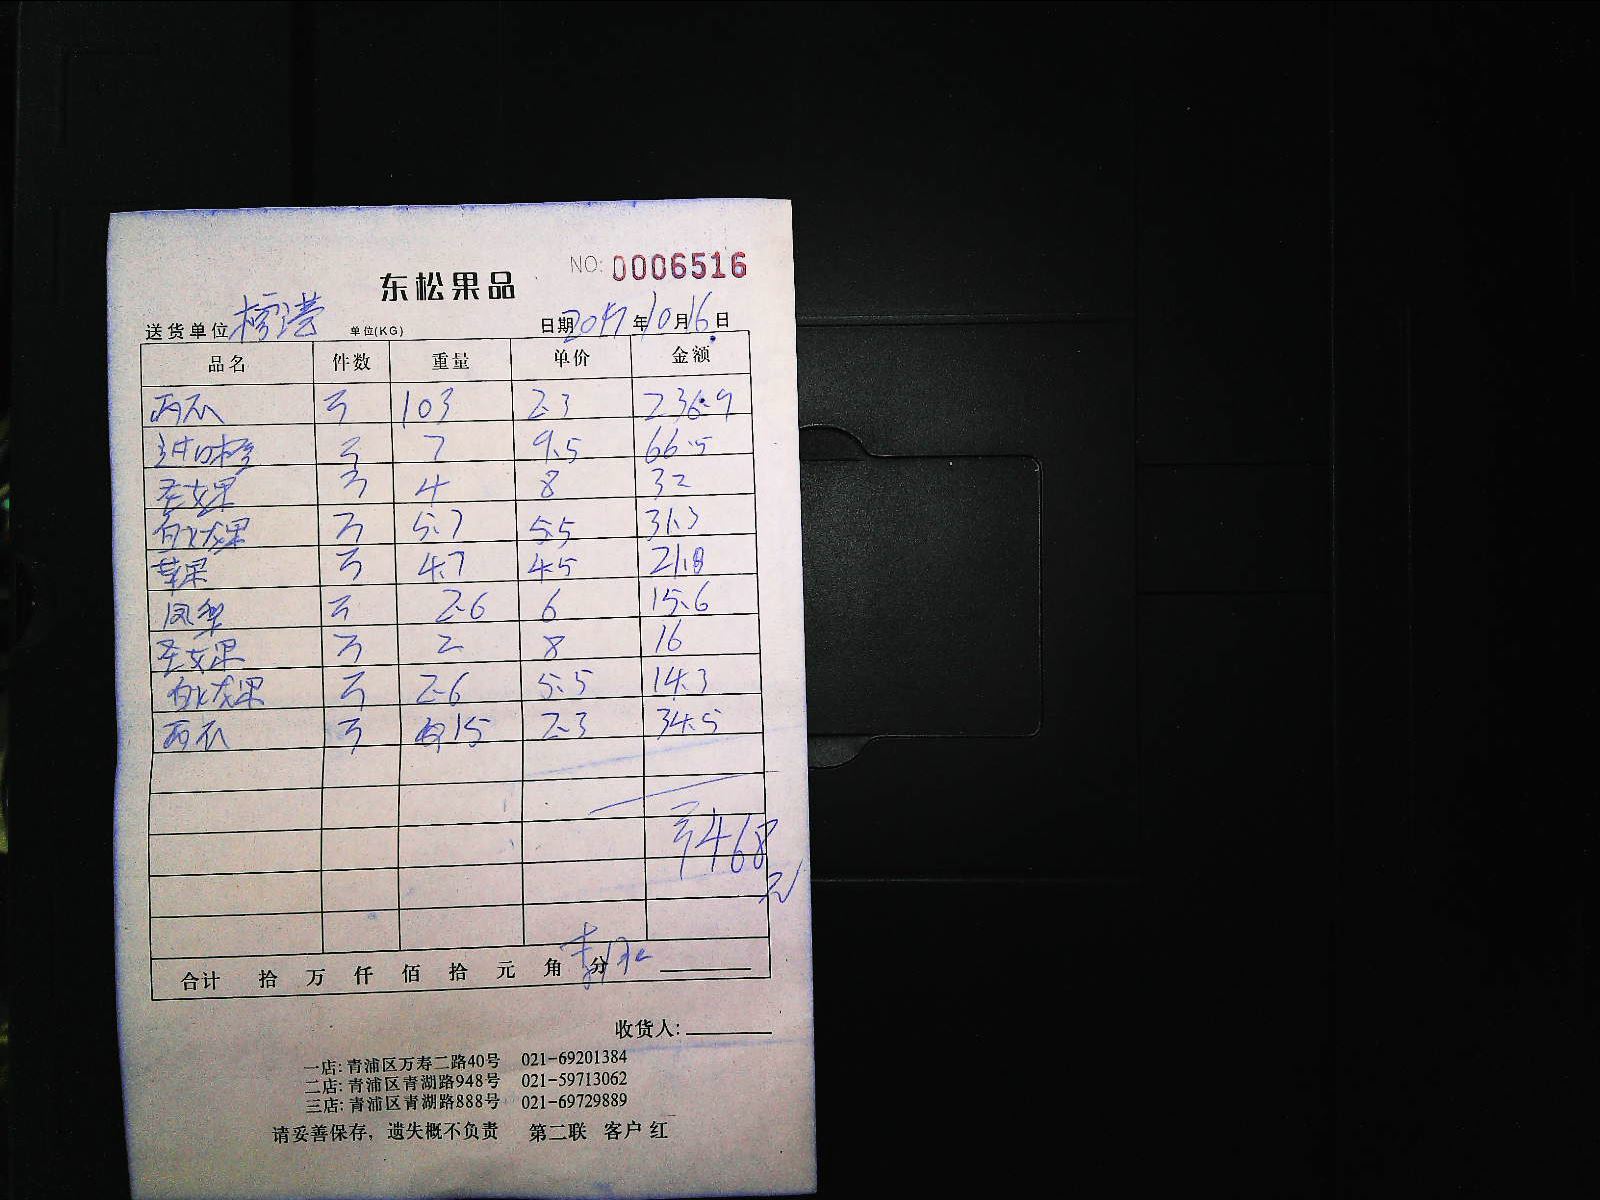 NO: 0006516
东松果品
送货单位 单位(KG) 日期2017年10月16日
品名 件数 重量 单价 金额
103 2.3 236.9
进口橙 7 9.5 66.5
圣女果 4 8 32
白火龙果 5.7 5.5 31.3
苹果 4.7 4.5 21.8
凤梨 2.6 6 15.6
圣女果 2 8 16
白火龙果 2.6 5.5 14.3
15 2.3 34.5
468
元
合计 拾 万 仟 佰 拾 元 角 分
收货人:
一店: 青浦区万寿二路40号 021-69201384
二店: 青浦区青湖路948号 021-59713062
三店: 青浦区青湖路888号 021-69729889
请妥善保存，遗失概不负责 第二联 客户 红